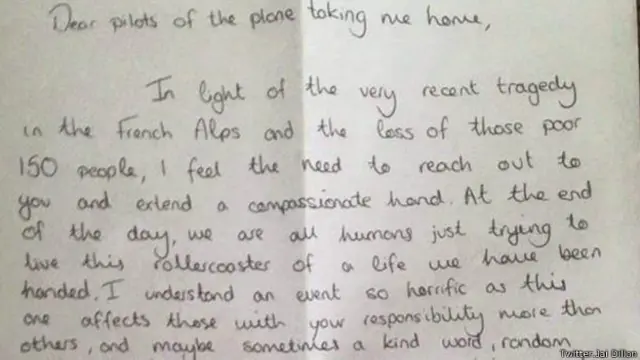 Dear pilots of the plane taking me home,
In light of the very recent tragedy
in the French Alps and the loss of those poor
150 people, I feel the need to reach out to
you and extend a compassionate hand. At the end
of the day, we are all humans just trying to
live this rollercoaster of a life we have been
handed. I understand an event so horrific as this
one affects those with your responsibility more than
others, and maybe sometimes a kind word, random
Twitter Jai Dillon